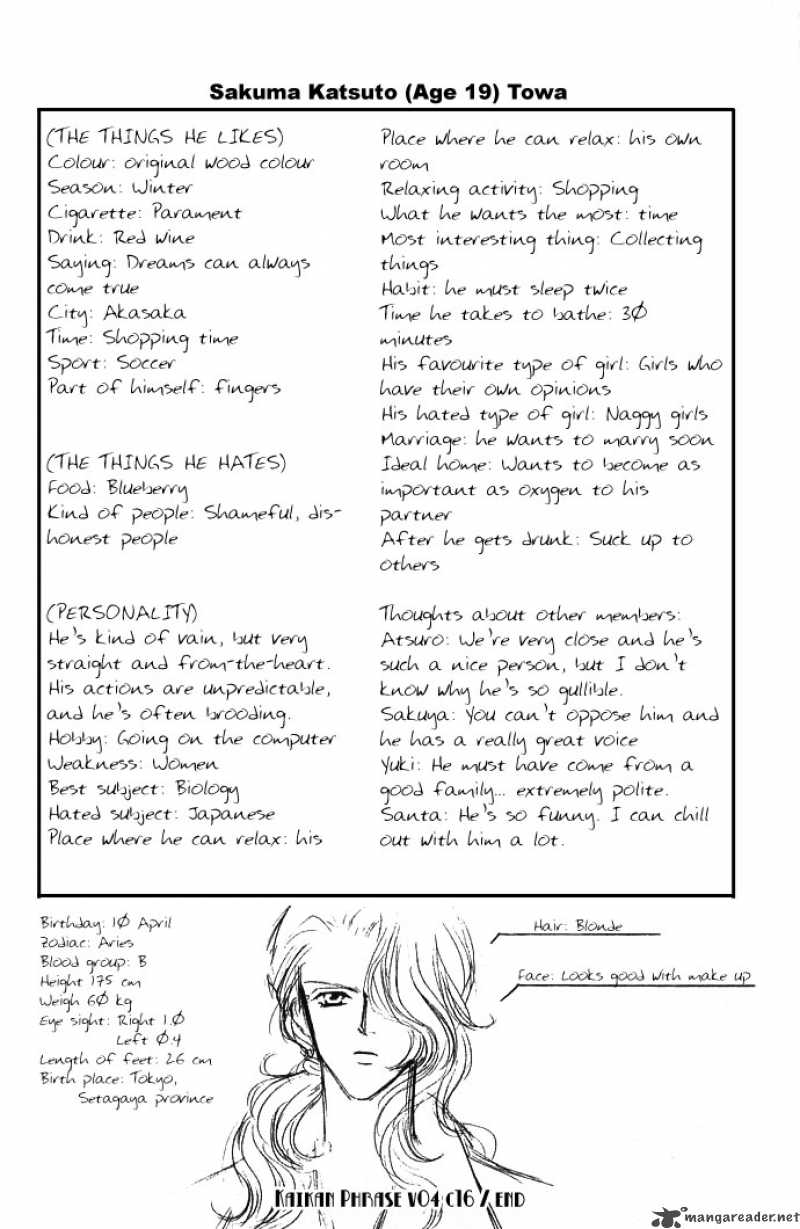 Sakuma Katsuto (Age 19) Towa
(THE THINGS HE LIKES)
Colour: original wood colour
Season: Winter
Cigarette: Parament
Drink: Red wine
Saying: Dreams can always
come true
City: Akasaka
Time: Shopping time
Sport: Soccer
Part of himself: fingers
(THE THINGS HE HATES)
Food: Blueberry
Kind of people: Shameful, dis-
honest people
(PERSONALITY)
He's kind of vain, but very
straight and from-the-heart.
His actions are unpredictable,
and he's often brooding.
Hobby: Going on the computer
Weakness: Women
Best subject: Biology
Hated subject: Japanese
Place where he can relax: his
Place where he can relax: his own
room
Relaxing activity: Shopping
What he wants the most: time
Most interesting thing: Collecting
things
Habit: he must sleep twice
Time he takes to bathe: 30
minutes
His favourite type of girl: Girls who
have their own opinions
His hated type of girl: Naggy girls
Marriage: he wants to marry soon
Ideal home: Wants to become as
important as oxygen to his
partner
After he gets drunk: Suck up to
others
Thoughts about other members:
Atsuro: We're very close and he's
such a nice person, but I don't
know why he's so gullible.
Sakuya: You can't oppose him and
he has a really great voice
Yuki: He must have come from a
good family... extremely polite.
Santa: He's so funny. I can chill
out with him a lot.
Birthday: 10 April
Zodiac: Aries
Blood group: B
Height 175 cm
Weigh 60 kg
Eye sight: Right 1.0
Left 0.4
Length of feet: 26 cm
Birth place: Tokyo,
Setagaya province
Hair: Blonde
Face: Looks good with make up
KAIKAN PHRASE V04 C16 / END
mangareader.net